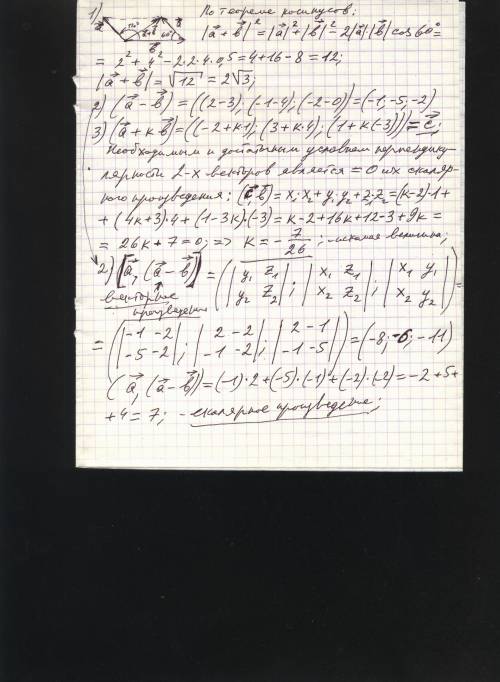 1) По теореме косинусов:
|a⃗+b⃗|² = |a⃗|²+|b⃗|²-2|a⃗|·|b⃗| cos60°=
= 2²+4²-2·2·4·0,5=4+16-8=12;
|a⃗+b⃗|=√12 = 2√3;
2) (a⃗-b⃗)=((2-3);(-1-4);(-2-0))=(-1;-5;-2)
3) (a⃗+кb⃗)=((-2+к·1);(3+к·4);(1+к(-3)))=c⃗;
Необходимым и достатным условием перпендику-
лярности 2-х векторов является =0 их скаляр-
ного произведения; (c⃗ b⃗)=x₁x₂+y₁y₂+z₁z₂=(к-2)·1+
+(4к+3)·4+(1-3к)·(-3)=к-2+16к+12-3+9к=
=26к+7=0; => к=-7/26; -искомая величина;
2) [a⃗,(a⃗-b⃗)]=(|y₁ z₁|;|x₁ z₁|;|x₁ y₁|)=
векторное |y₂ z₂| |x₂ z₂| |x₂ y₂|
произведение
=(|-1 -2|;|2 -2|;|2 -1|)=(-8;-6;-11)
|-5 -2| |-1 -2| |-1 -5|
(a⃗,(a⃗-b⃗))=(-1)·2+(-5)·(-1)+(-2)·(-2)=-2+5+
+4=7; -скалярное произведение;